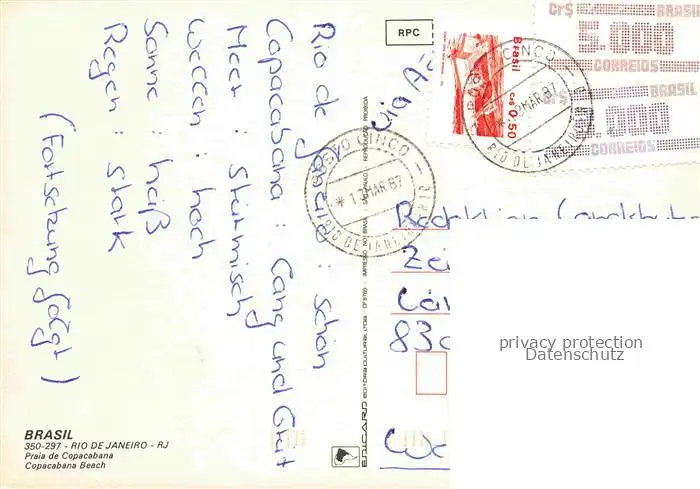 Rio de Janeiro : schön
Copacabana : lang und breit
Meer : stürmisch
Wellen : hoch
Sonne : heiß
Regen : stark
(Fortsetzung folgt)
BRASIL
350-297 - RIO DE JANEIRO - RJ
Praia de Copacabana
Copacabana Beach
RPC
EDICARD EDITORA CULTURAL LTDA
IMPRESSO NO BRASIL
REPRODUÇÃO PROIBIDA
Via
Brasil
Cz$ 0,50
Cr$ BRASIL
5.000
CORREIOS
Cr$ BRASIL
.000
CORREIOS
POSTO CINCO
13 MAR 87
RIO DE JANEIRO
CINCO
MAR 87
RIO DE JANEIRO
Redaktion
83
privacy protection
Datenschutz